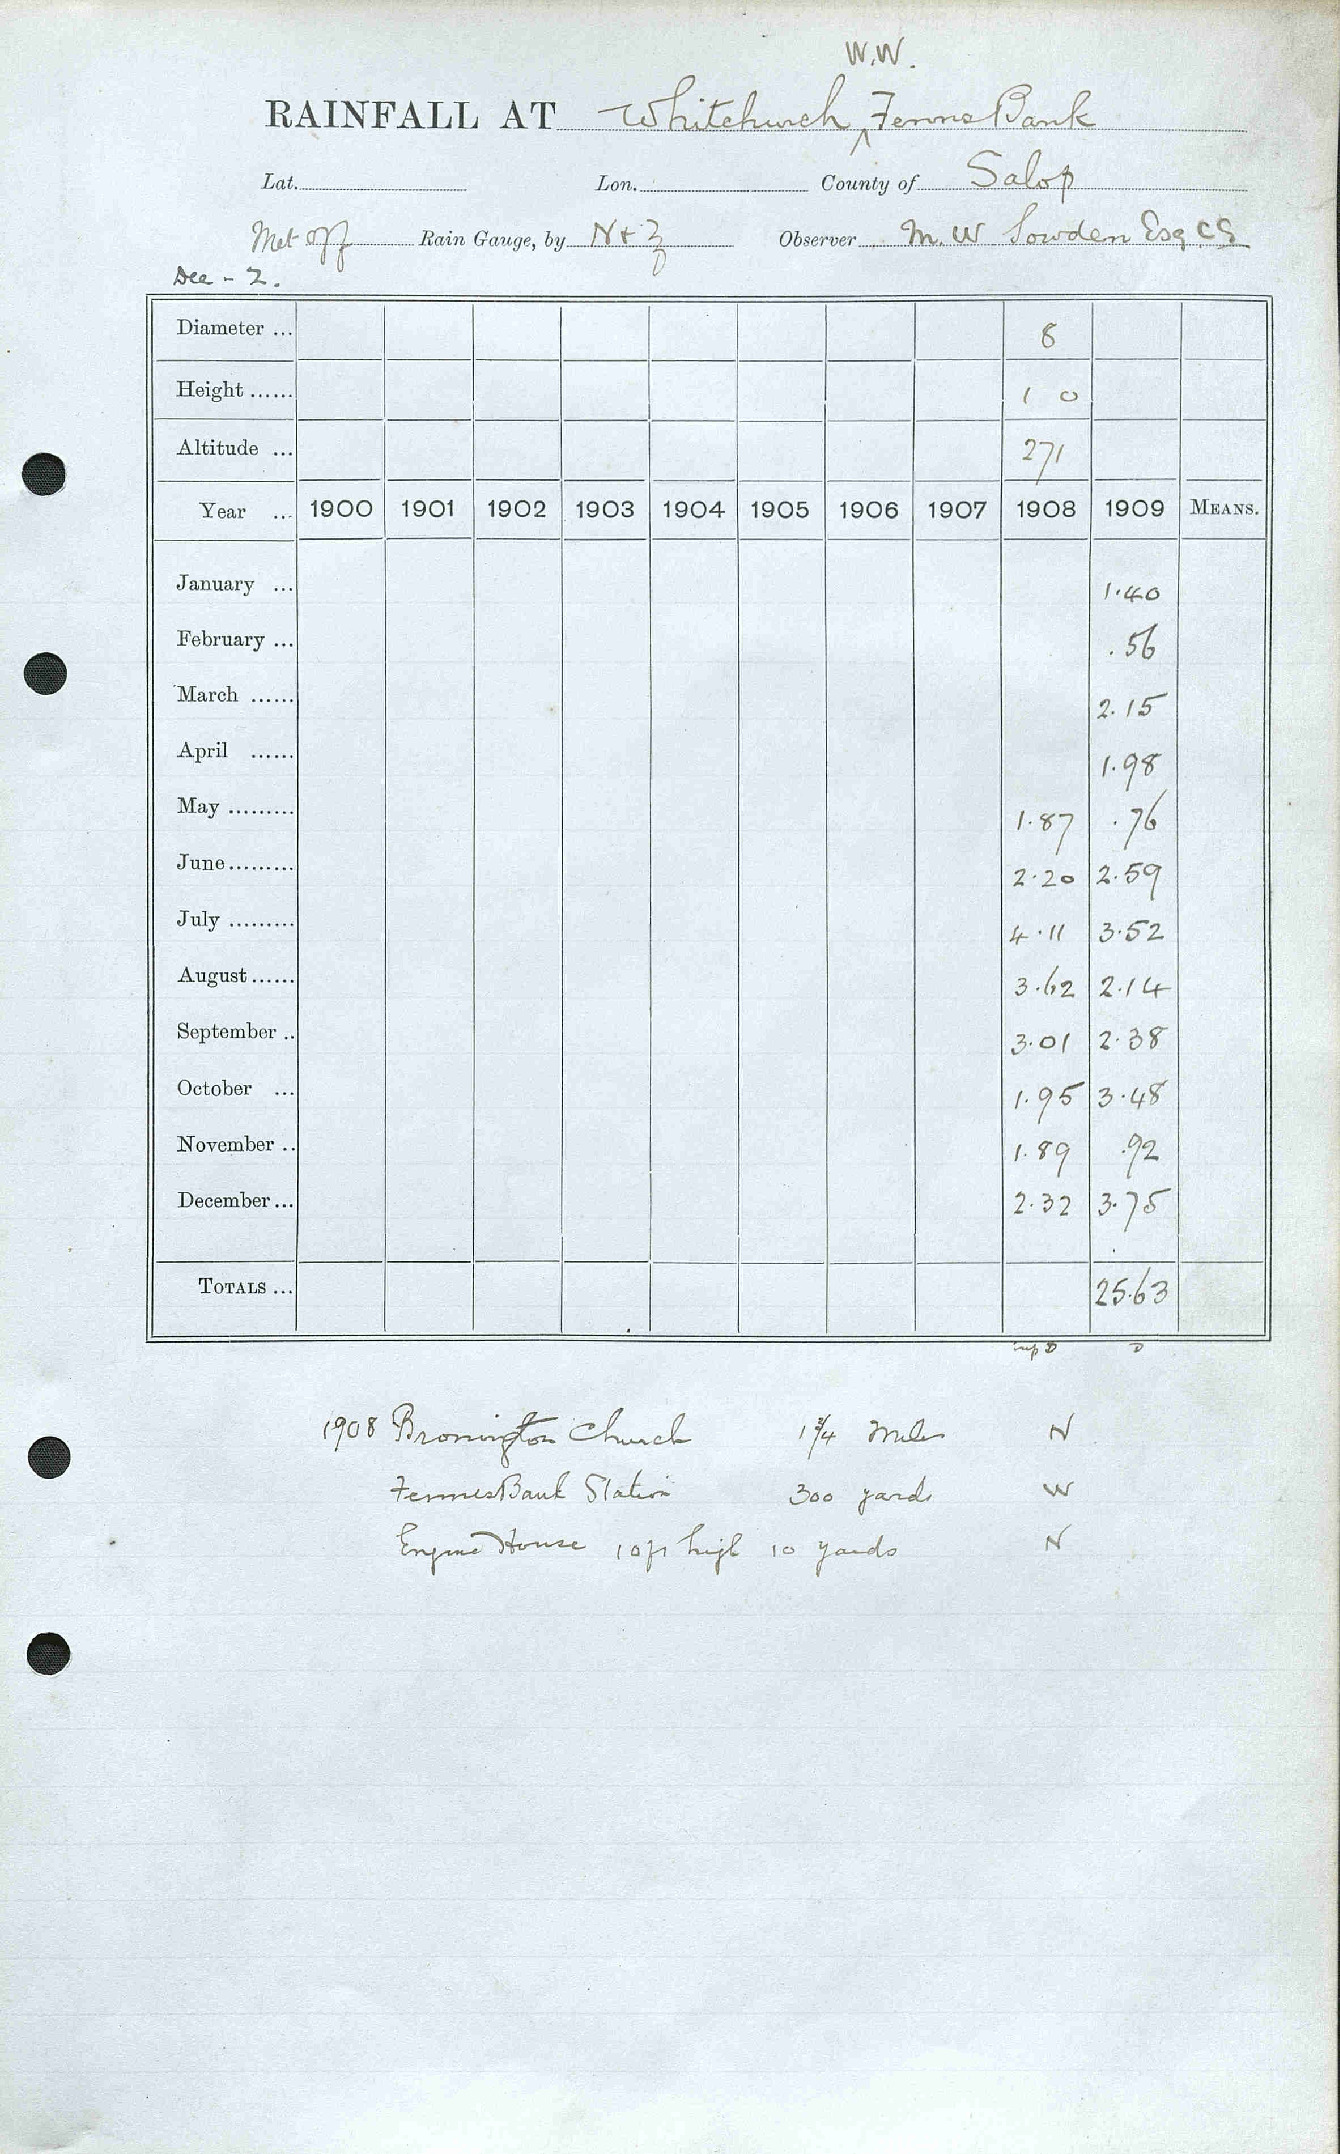 W.W.
RAINFALL AT Whitchurch ^ Fenns Bank
Lat. Lon. County of Salop
Met off Rain Gauge, by N+Z Observer M. W Sowden Esq CE
Dec - 2.
Diameter ... 8
Height ...... 1 0
Altitude ... 271
Year ... 1900 1901 1902 1903 1904 1905 1906 1907 1908 1909 MEANS.
January ... 1.40
February ... .56
March ...... 2.15
April ...... 1.98
May ......... 1.87 .76
June ......... 2.20 2.59
July ......... 4.11 3.52
August ...... 3.62 2.14
September .. 3.01 2.38
October ... 1.95 3.48
November .. 1.89 .92
December ... 2.32 3.75
TOTALS ... 25.63
D D
1908 Bronington Church 1 3/4 Miles N
Fenns Bank Station 300 yards W
Engine House 10 ft high 10 yards N